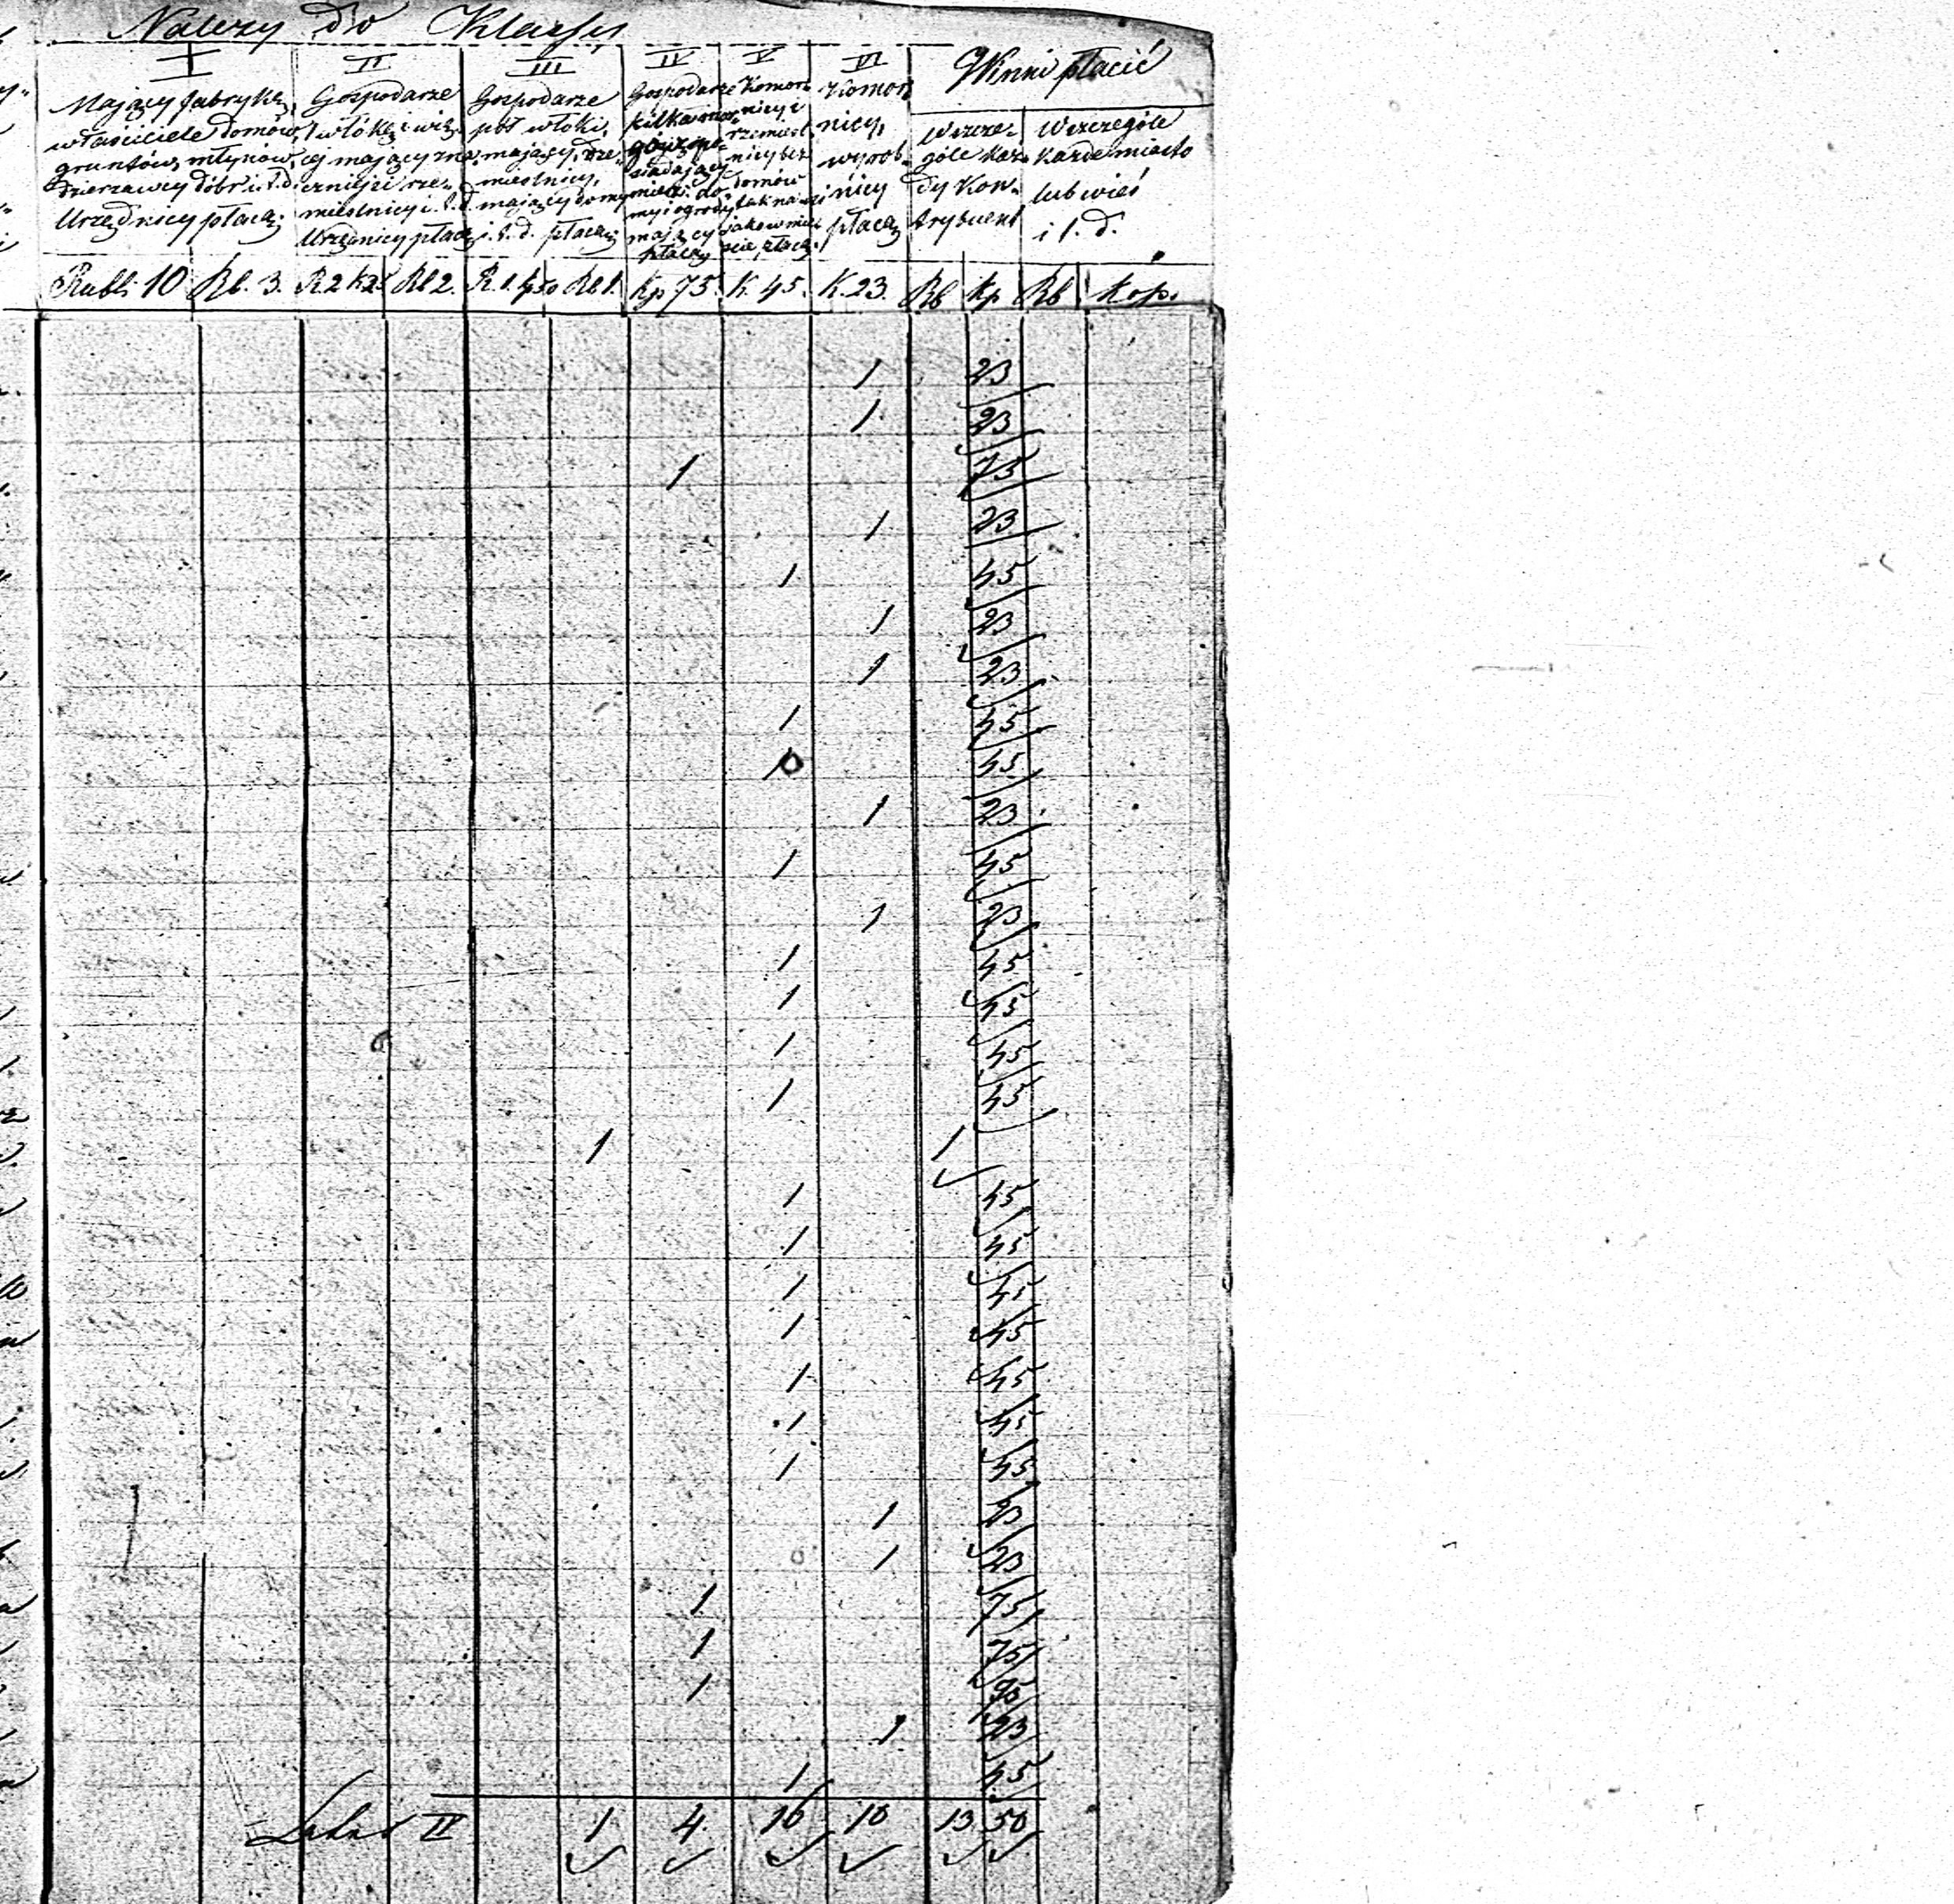 Należy do Klassy
I II III IV V VI Winni płacić
Mający fabryki, właściciele domów gruntów, młynów Dzierżawcy dóbr i. t. d. Urzędnicy płacą
Gospodarze włókę i wię- cej mający zna- czniejsi rze- mieślnicy i. t. d. Urzędnicy płacą
Gospodarze pół włóki, mający, rze- mieślnicy, mający domy i. t. d. płacą
Gospodarze kilka mor- gów po- siadający mieli. do- my i ogrody mający płacą
Komor- nicy i rzemieśl- nicy bez domów tak na wsi jako w mie- ście, płacą
Komor- nicy, wyrob- nicy płacą
Wszcze- góle każ- dy Kon- trybuent
Wszczególe Każde miasto lub wieś i t. d.
Rubli 10 Rb. 3. R 2 k 25 Rb 2. R. 1. k 50 Rb 1. Kp 75. K. 45. K. 23. Rb Kp Rb Kop.
1 23
1 23
1 75
1 23
1 45
1 23
1 23
1 45
45
1 23
1 45
1 23
1 45
1 45
1 45
1 45
1 1
1 45
1 45
1 45
1 45
1 45
1 45
1 45
1 23
1 23
1 75
1 75
1 75
1 23
1 45
Latus II 1 4. 16 10 13 50